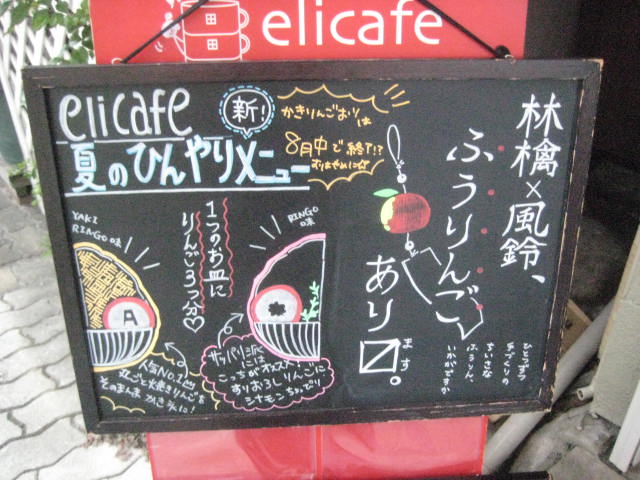 elicafe
elicafe
新!
かきりんごおりは
8月中で終了!?
夏のひんやりメニュー
YAKI
RINGO味
1つのお皿に
りんご3つ分♡
RINGO
味
人気No.1!
丸ごと焼きりんごを
そのまんまかき氷に!
サッパリ派
にはこっちがオススメ!
すりおろしりんごに
シナモンちょぴり
林檎×風鈴、
ふうりんご
あり〼。
ます
ひとつずつ
手づくりの
ちいさな
ふうりん、
いかがですか